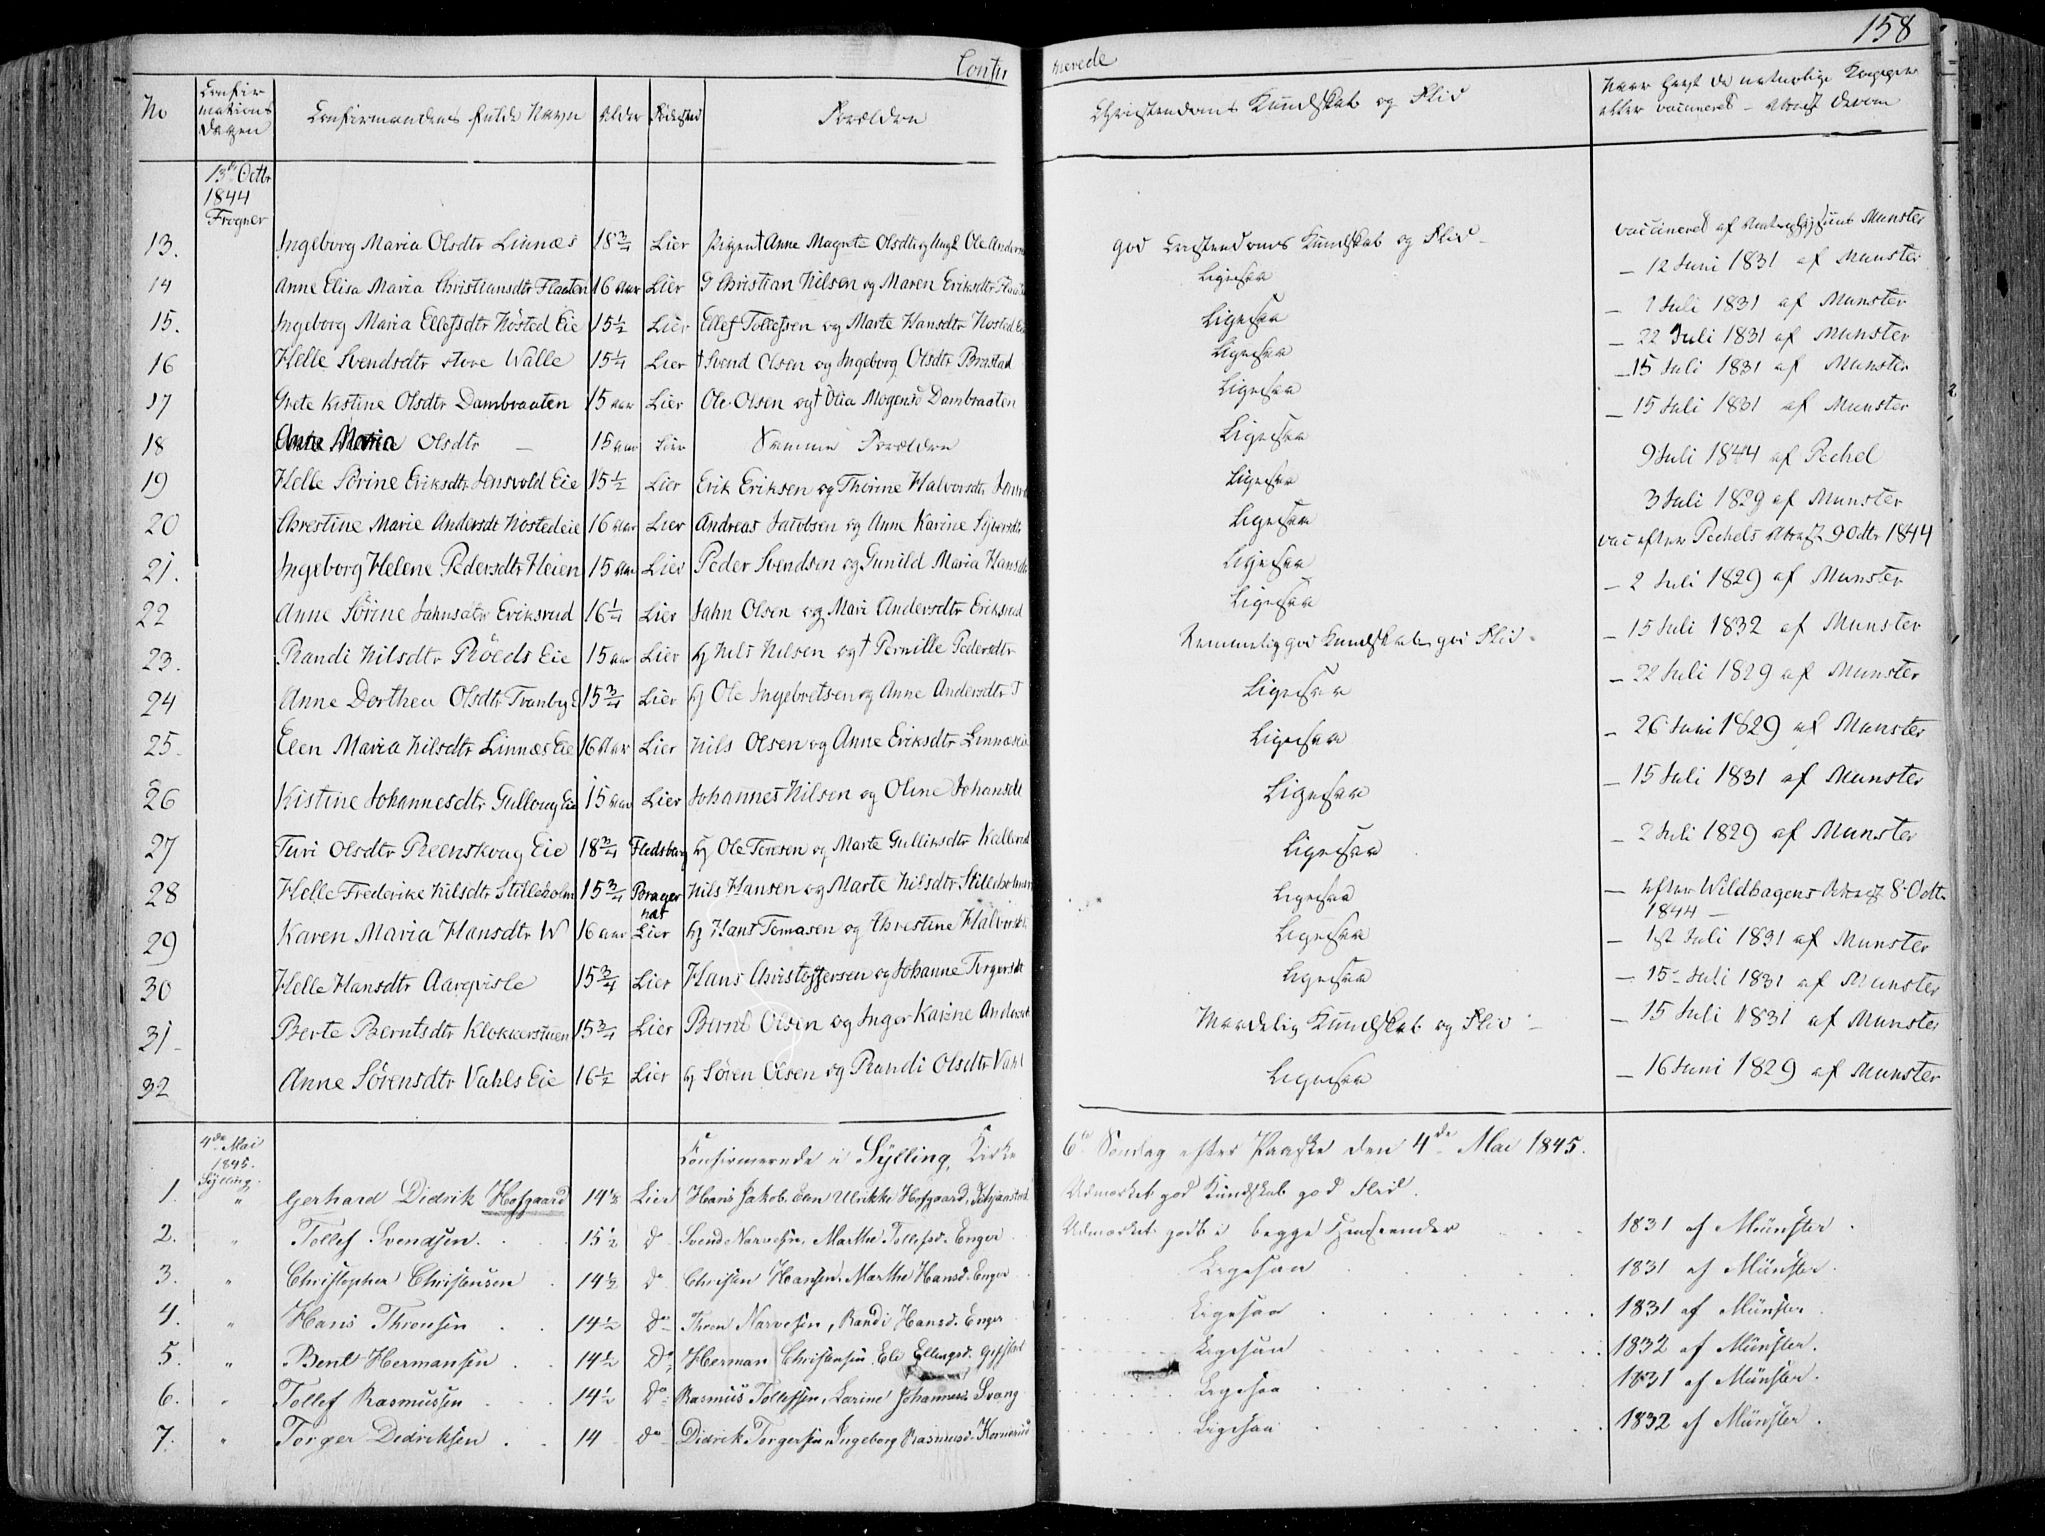 158
Confirmerede
No | Confirmations Dagen | Confirmandens fulde Navn | Alder | Fødested | Forældre | Christendoms Kundskab og Flid | Naar havt de naturlige Kopper eller vaccineret – Attest derom
13de Octbr 1844 Frogner
13. Ingeborg Maria Olsdtr Linnæs | 18 3/4 | Lier | Pigen † Anne Magrete Olsdtr og Ungk Ole Andersen | god Cristendoms Kundskab og Flid – | vaccineret af Munster
14 Anne Elisa Maria Christiansdtr Flaaten | 16 Aar | Lier | G Christian Nilsen og Maren Eriksdtr Flaaten | Ligesaa | – 12 Juni 1831 af Munster
15. Ingeborg Maria Ellefsdtr Nøsted Eie | 15 1/2 | Lier | Ellef Tollefsen og Marte Hansdtr Nøsted Eie | Ligesaa | – 1 Juli 1831 af Munster
16 Helle Svendsdtr store Walle | 15 1/4 | Lier | † Svend Olsen og Ingeborg Olsdtr Brastad | Ligesaa | – 22 Juli 1831 af Munster
17 Grete Kistine Olsdtr Dambraaten | 15 Aar | Lier | Ole Olsen og † Olia Mogensd Dambraaten | Ligesaa | – 15 Juli 1831 af Munster
18 Anne Maria Olsdtr – | 15 Aar | Lier | Samme Forældre | Ligesaa | – 15 Juli 1831 af Munster
19 Helle Sörine Eriksdtr Jensvold Eie | 15 1/2 | Lier | Erik Eriksen og Thorine Halvorsdtr | Ligesaa | 9 Juli 1844 af Pechel
20 Chrestine Marie Andersdt Nøstedeie | 16 Aar | Lier | Andreas Jacobsen og Anne Karine Siversdtr | Ligesaa | 3 Juli 1829 af Munster
21. Ingeborg Helene Pedersdtr Heien | 15 Aar | Lier | Peder Svendsen og Gunild Maria Hansdtr | Ligesaa | vac efter Pechels Attest 9 Odtr 1844
22 Anne Sörine Jahnsdtr Eriksrud | 16 1/4 | Lier | Jahn Olsen og Mari Andersdtr Eriksrud | Ligesaa | – 2 Juli 1829 af Munster
23. Randi Nilsdtr Röeds Eie | 15 Aar | Lier | Hj Nils Nilsen og † Pernille Pedersdtr | Nemmelig god Kundskab god Flid – | – 15 Juli 1832 af Munster
24 Anne Dorthea Olsdtr Tranby E | 15 3/4 | Lier | Hj Ole Ingebretsen og Anne Andersdtr T | Ligesaa | – 22 Juli 1829 af Munster
25. Elen Maria Nilsdtr Linnæs Eie | 16 Aar | Lier | Nils Olsen og Anne Eriksdtr Linnæseie | Ligesaa | – 26 Juni 1829 af Munster
26 Kistine Johannesdtr Gulloug Eie | 15 Aar | Lier | Johannes Nilsen og Oline Johansdt | Ligesaa | – 15 Juli 1831 af Munster
27 Turi Olsdtr Reenskoug Eie | 18 3/4 | Fledsberg | Hj Ole Toresen og Marte Gulliksdtr | Ligesaa | – 2 Juli 1829 af Munster
28 Helle Frederike Nilsdtr Stilleholm | 15 3/4 | Bragernæs | Nils Hansen og Marte Nilsdtr Stilleholmen | Ligesaa | – efter Wildhagens Attest 8 Odtr 1844 –
29 Karen Maria Hansdtr W | 16 Aar | Lier | Hj Hans Tomasen og Chrestine Halvorsdt | Ligesaa | – 1st Juli 1831 af Munster
30 Helle Hansdtr Aarqvisle | 15 3/4 | Lier | Hans Christoffersen og Johanne Torgersdt | Ligesaa | – 15 Juli 1831 af Munster
31 – Berte Berntsdtr Klokkerstuen | 15 3/4 | Lier | Bernt Olsen og Inger Karine Andersdt | Maadelig Kundskab og Flid – | – 15 Juli 1831 af Munster
32 Anne Sörensdtr Vahls Eie | 16 1/2 | Lier | Hj Sören Olsen og Randi Olsdtr Vahl | Ligesaa | – 16 Juni 1829 af Munster
4de Mai 1845. Sylling. | Confirmerede i Sylling Kirke 6te Søndag efter Paaske den 4de Mai 1845.
1. " Gerhard Didrik Hofgaard | Lier | Hans Jakob, Elen Ulrikke Hofgaard, | Udmærket god Kundskab god Flid.
2. " Tollef Svendsen. | 15 1/2 | do | Svend Narvesen, Marthe Tollefsd. Enger | Udmærket godt i begge Henseender | 1831 af Münster.
3. " Christopher Christensen | 14 1/2 | do | Christen Hansen, Marthe Hansd. Enger | Ligesaa | 1831 af Münster.
4. " Hans Thronsen | 14 1/2 | Do | Thron Narvesen, Randi Hansd. Enger | Ligesaa | 1831 af Münster.
5. " Bent Hermansen | 14 1/2 | Do | Herman Christensen, Eli Ellingsd. | Ligesaa | 1832 af Münster.
6. " Tollef Rasmussen | 14 1/2 | Do | Rasmus Tollefsen, Karine Johannesd. Svang | Ligesaa | 1831 af Münster.
7. " Torger Didriksen | 14 | Do | Didrik Torgersen, Ingeborg Rasmusd. Kornerud | Ligesaa | 1832 af Münster.